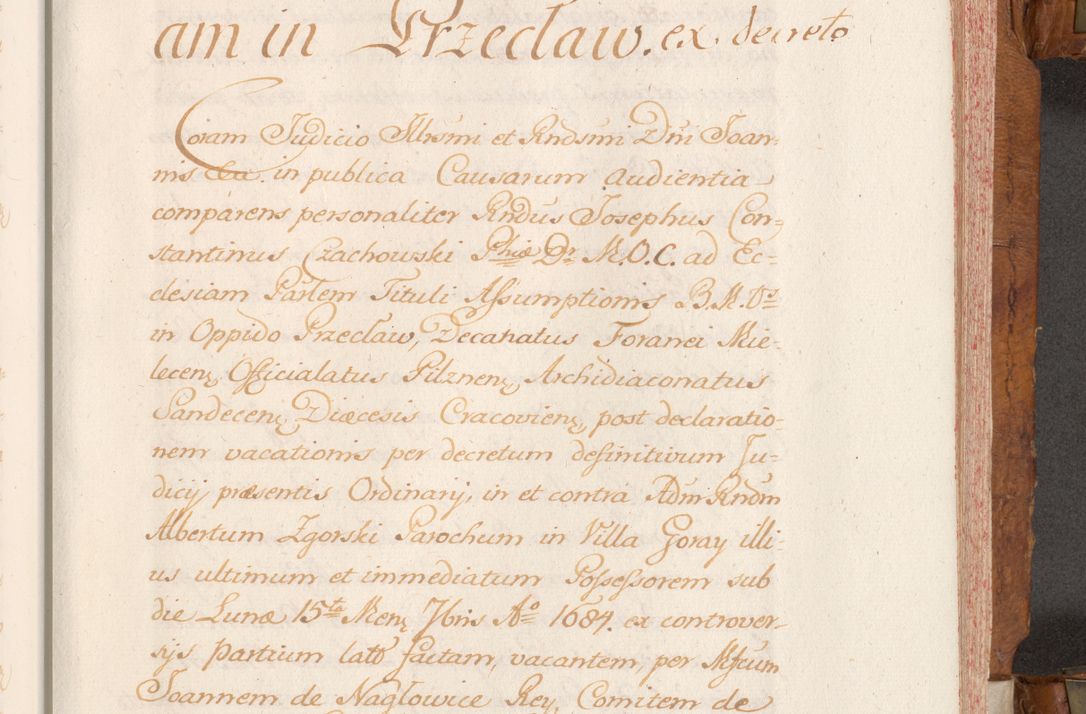 am in Przecław. ex. decreto
Coram Judicio Illrsmi et Rndsmi Dni Joan-
nis &a. in publica Causarum Audientia
comparens personaliter Rndus Josephus Con-
stantinus Czachowski Phiæ Dr. M.O.C. ad Ec-
clesiam Parlem Tituli Assumptionis B.M.Vs
in Oppido Przecław, Decanatus Foranei Mie-
lecen, Officialatus Pilznen, Archidiaconatus
Sandecen, Diæcesis Cracovien, post declaratio-
nem vacationis per decretum definitivum Ju-
dicij præsentis Ordinarij, in et contra Adm Rndm
Albertum Zgorski Parochum in Villa Goray illi-
us ultimum et immediatum Possessorem sub
die Lunæ 15ta Men 7bris Ao 1684. ex controver-
sijs partium lato factam, vacantem, per Mfcum
Joannem de Nagłowice Rey, Comitem de